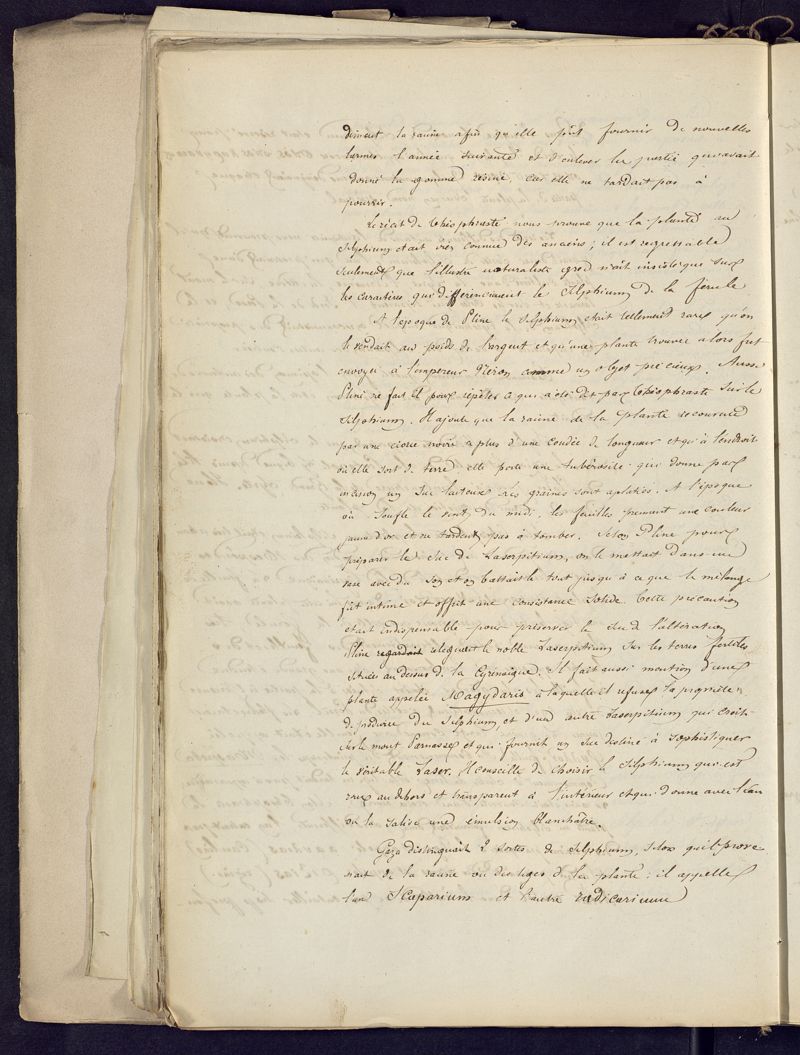 diment la racine afin qu'elle pût fournir de nouvelles
larmes l'année suivante et d'enlever la partie qui avait
donné la gomme résine, car elle ne tardait pas à
pourrir.
Le récit de Théophraste nous prouve que la plante au
Silphium etait très connue des anciens ; il est regrettable
seulement que l'illustre naturaliste grec n'ait insisté que sur
les caractères qui différencient le Silphium de la férule
A l'époque de Pline le Silphium etait tellement rare qu'on
le vendait au poids de l'argent et qu'une plante trouvée alors fut
envoyée à l'empereur Néron comme un objet précieux. Aussi
Pline ne fait il que répéter ce qui a été dit par Théophraste sur le
Silphium. Il ajoute que la racine de la plante recouverte
par une écorce noire a plus d'une coudée de longueur et qu'à l'endroit
où elle sort de terre elle porte une tubérosité qui donne par
incision un suc laiteux. Les graines sont aplaties. A l'époque
où souffle le vent du midi, les feuilles prennent une couleur
jaune d'or et ne tardent pas à tomber. Selon Pline pour
préparer le suc de Laserpitium, on le mettait dans un
vase avec du son et on battait le tout jusqu'à ce que le mélange
fût intime et offrit une consistance solide. Cette précaution
etait indispensable pour préserver le suc d'altération
Pline regardait reléguait le noble Laserpitium sur les terres fertiles
situées au dessus de la Cyrénaïque. Il fait aussi mention d'une
plante appelée Magydaris à laquelle il refuse la propriété
de produire du Silphium, et d'un autre Laserpitium qui croit
sur le mont Parnasse et qui fournit un suc destiné à sophistiquer
le véritable Laser. Il conseille de choisir le Silphium qui est
roux au dehors et transparent à l'intérieur et qui donne avec l'eau
ou la salive une émulsion blanchâtre.
Gaza distinguait 2 sortes de Silphium, selon qu'il prove-
nait de la racine ou des tiges de la plante : il appelle
l'un Scaparium et l'autre radicarium